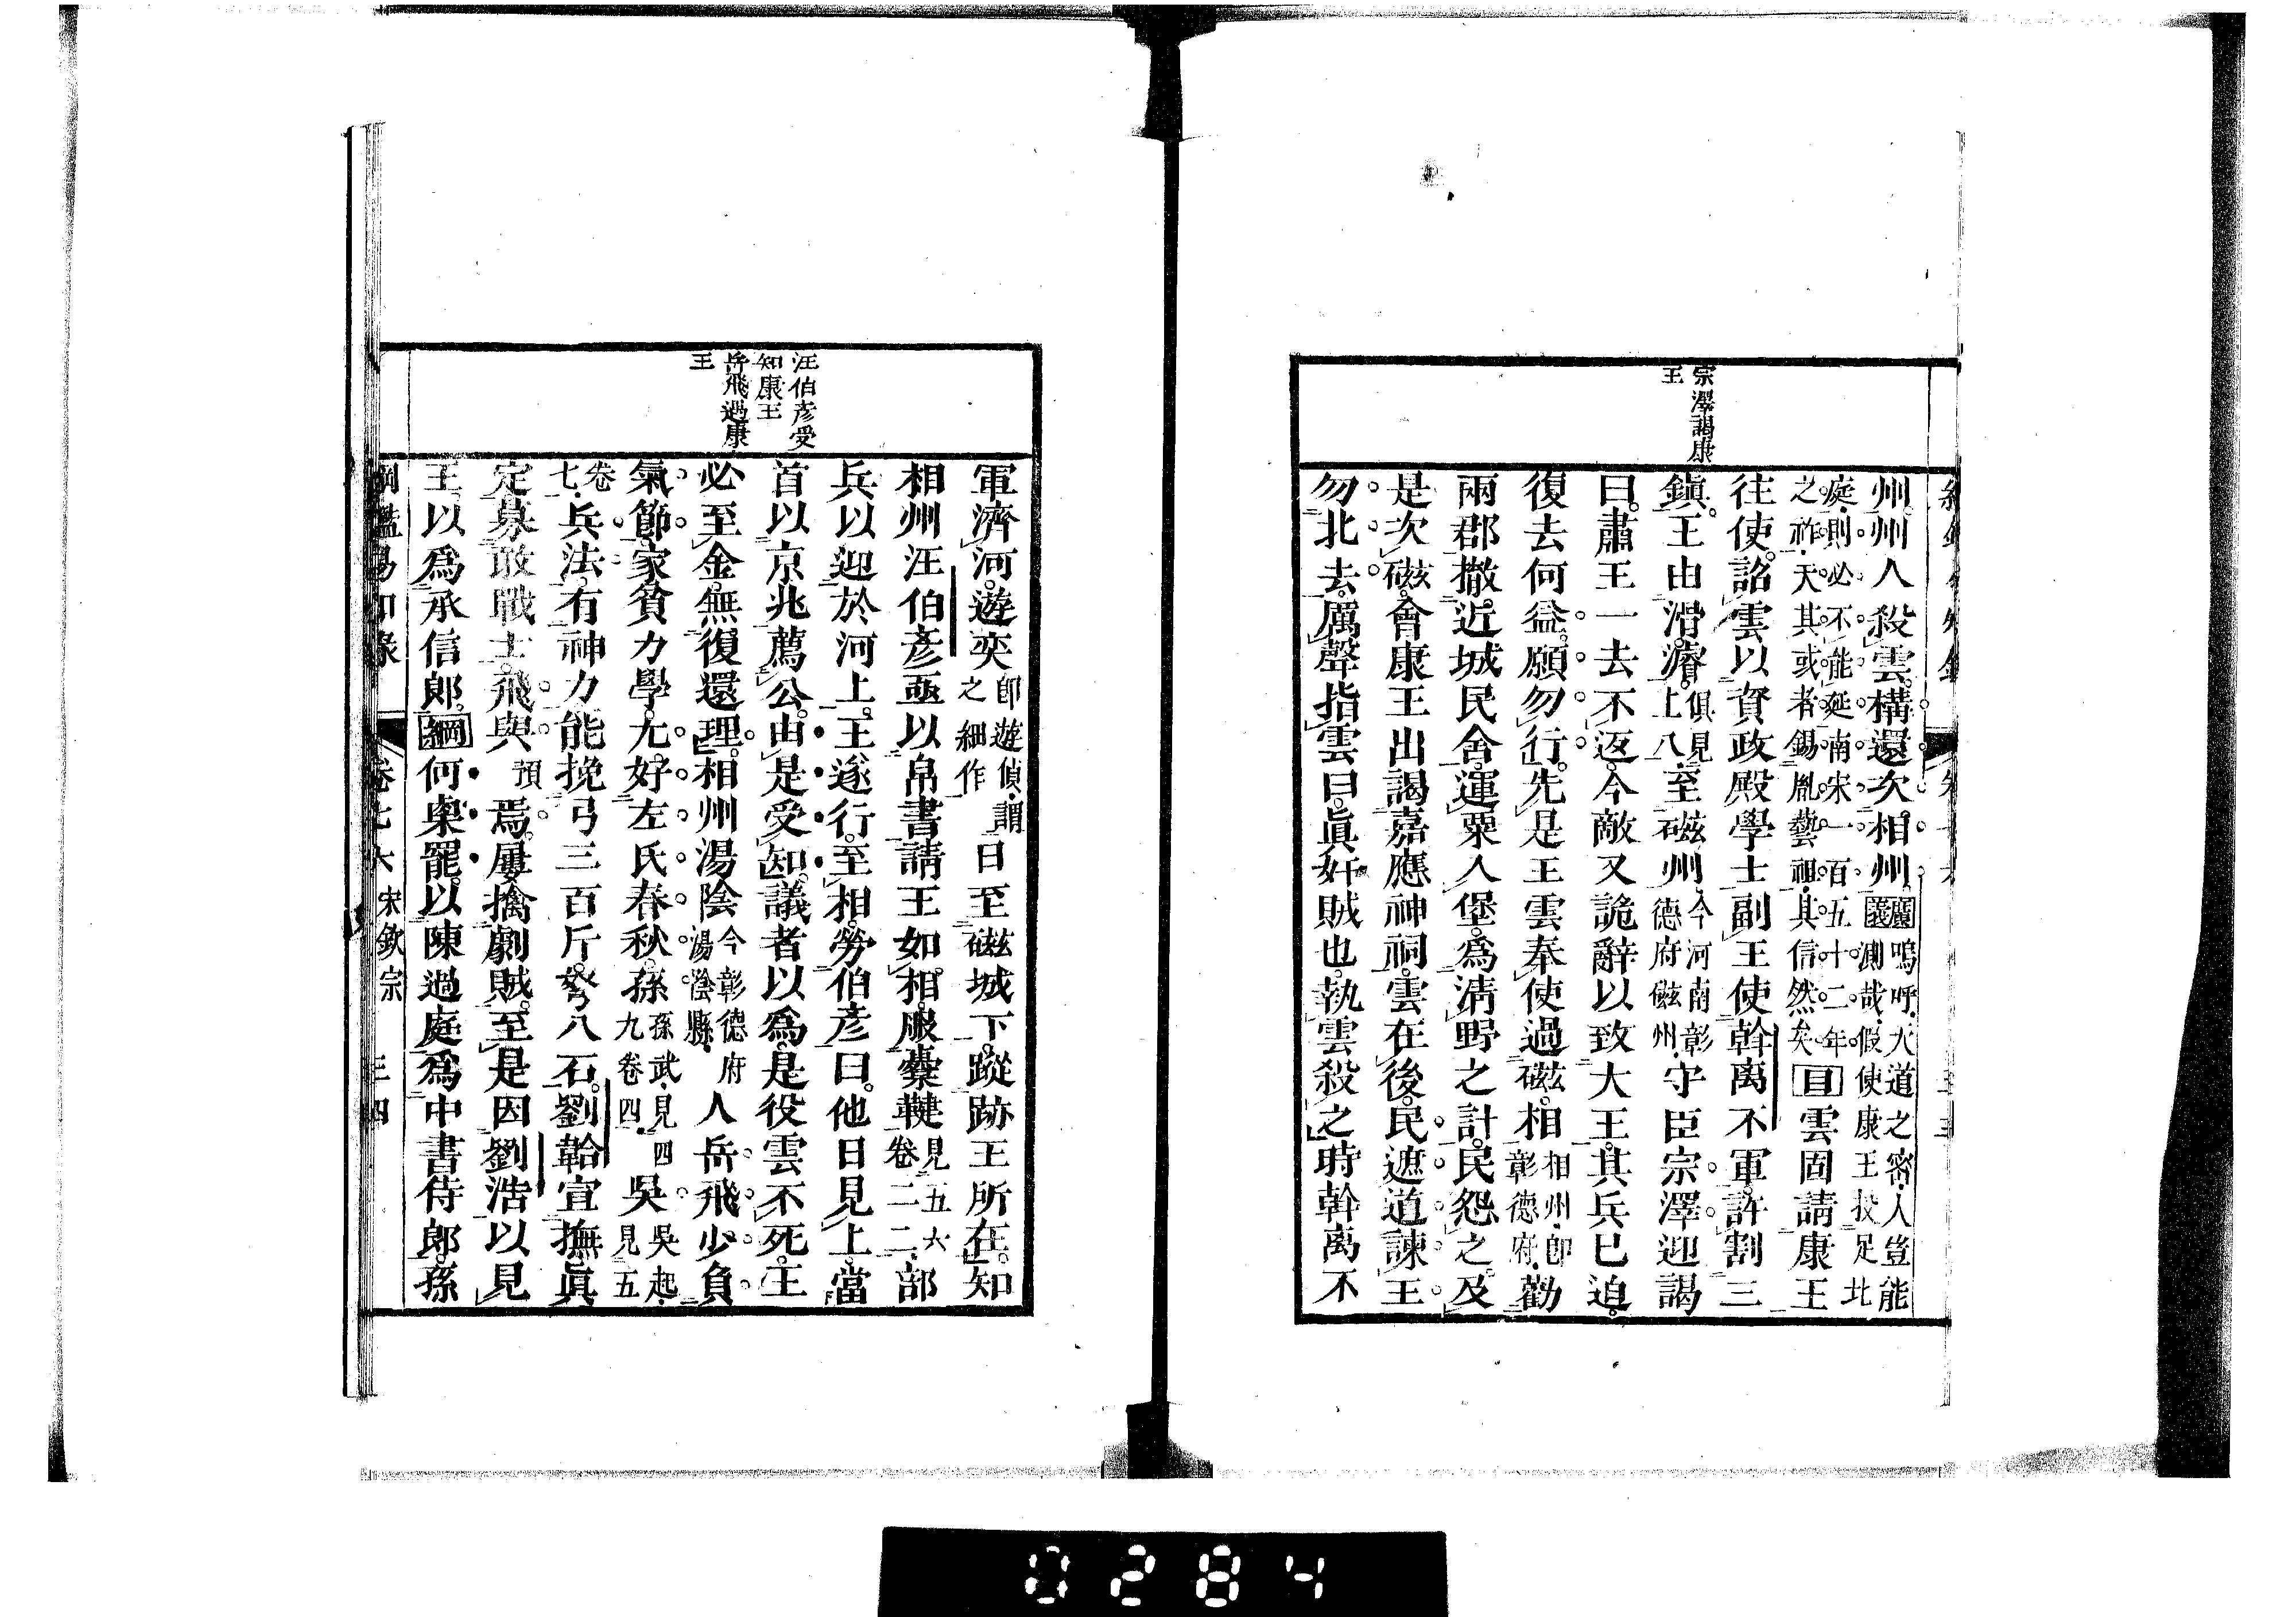 宗澤謁康
王
州州人殺雲構還次相州廣義嗚呼天道之密人豈能
測哉假使康王投足北
庭則必不能延南宋一百五十二年
之祚天其或者錫胤藝祖其信然矣目雲固請康王
往使詔雲以資政殿學士副王使斡离不軍許割三
鎮王由滑濬俱見上八至磁州今河南彰德府磁州守臣宗澤迎謁
曰肅王一去不返今敵又詭辭以致大王其兵已迫
復去何益願勿行先是王雲奉使過磁相相州即彰德府勸
兩郡撤近城民舍運粟入堡爲淸野之計民怨之及
是次磁會康王出謁嘉應神祠雲在後民遮道諫王
勿北去厲聲指雲曰眞奸賊也執雲殺之時斡离不
汪伯彥受
知康王
岳飛過康
王
軍濟河遊奕即遊偵謂之細作日至磁城下蹤跡王所在知
相州汪伯彥亟以帛書請王如相服櫜鞬見五六卷二二部
兵以迎於河上王遂行至相勞伯彥曰他日見上當
首以京兆薦公由是受知議者以爲是役雲不死王
必至金無復還理相州湯陰今彰德府湯陰縣人岳飛少負
氣節家貧力學尤好左氏春秋孫孫武見四九卷四吳吳起見五
卷七兵法有神力能挽弓三百斤弩八石劉韐宣撫眞
定募敢戰士飛與預焉屢擒劇賊至是因劉浩以見
王以爲承信郎綱何㮚罷以陳過庭爲中書侍郎孫
綱鑑易知錄 卷七六宋欽宗 三四
0284